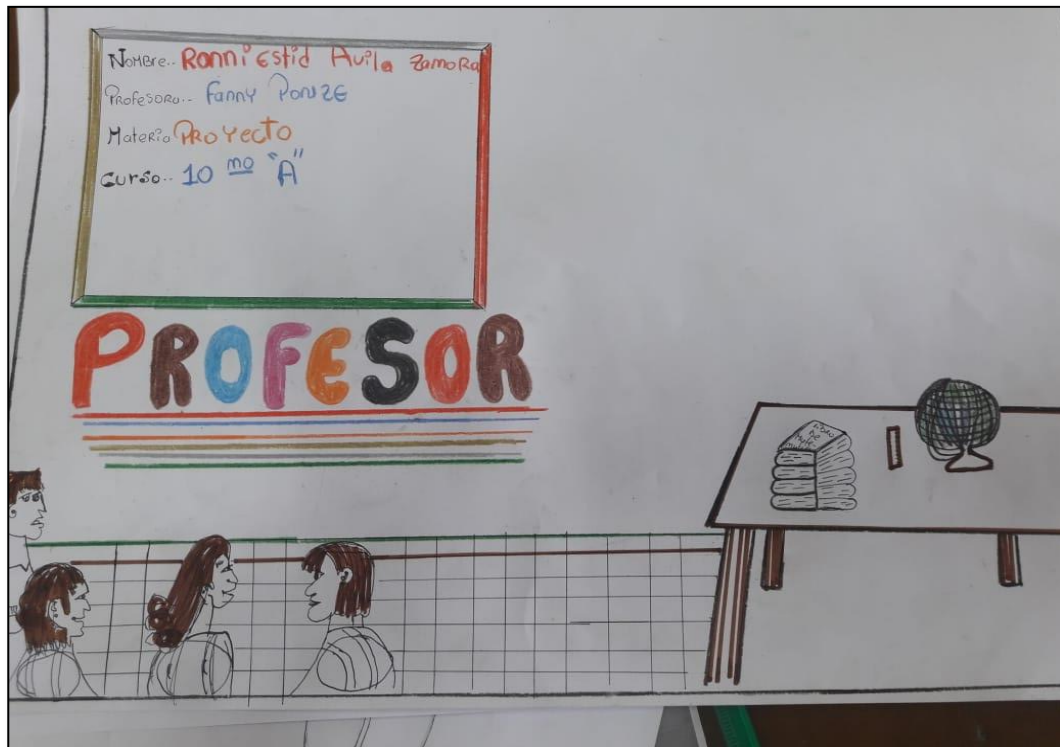 Nombre.. Ronni Estid Avila Zamora
Profesora.. Fanny Ponze
Materia Proyecto
Curso.. 10 mo "A"
PROFESOR
LIBRO
DE